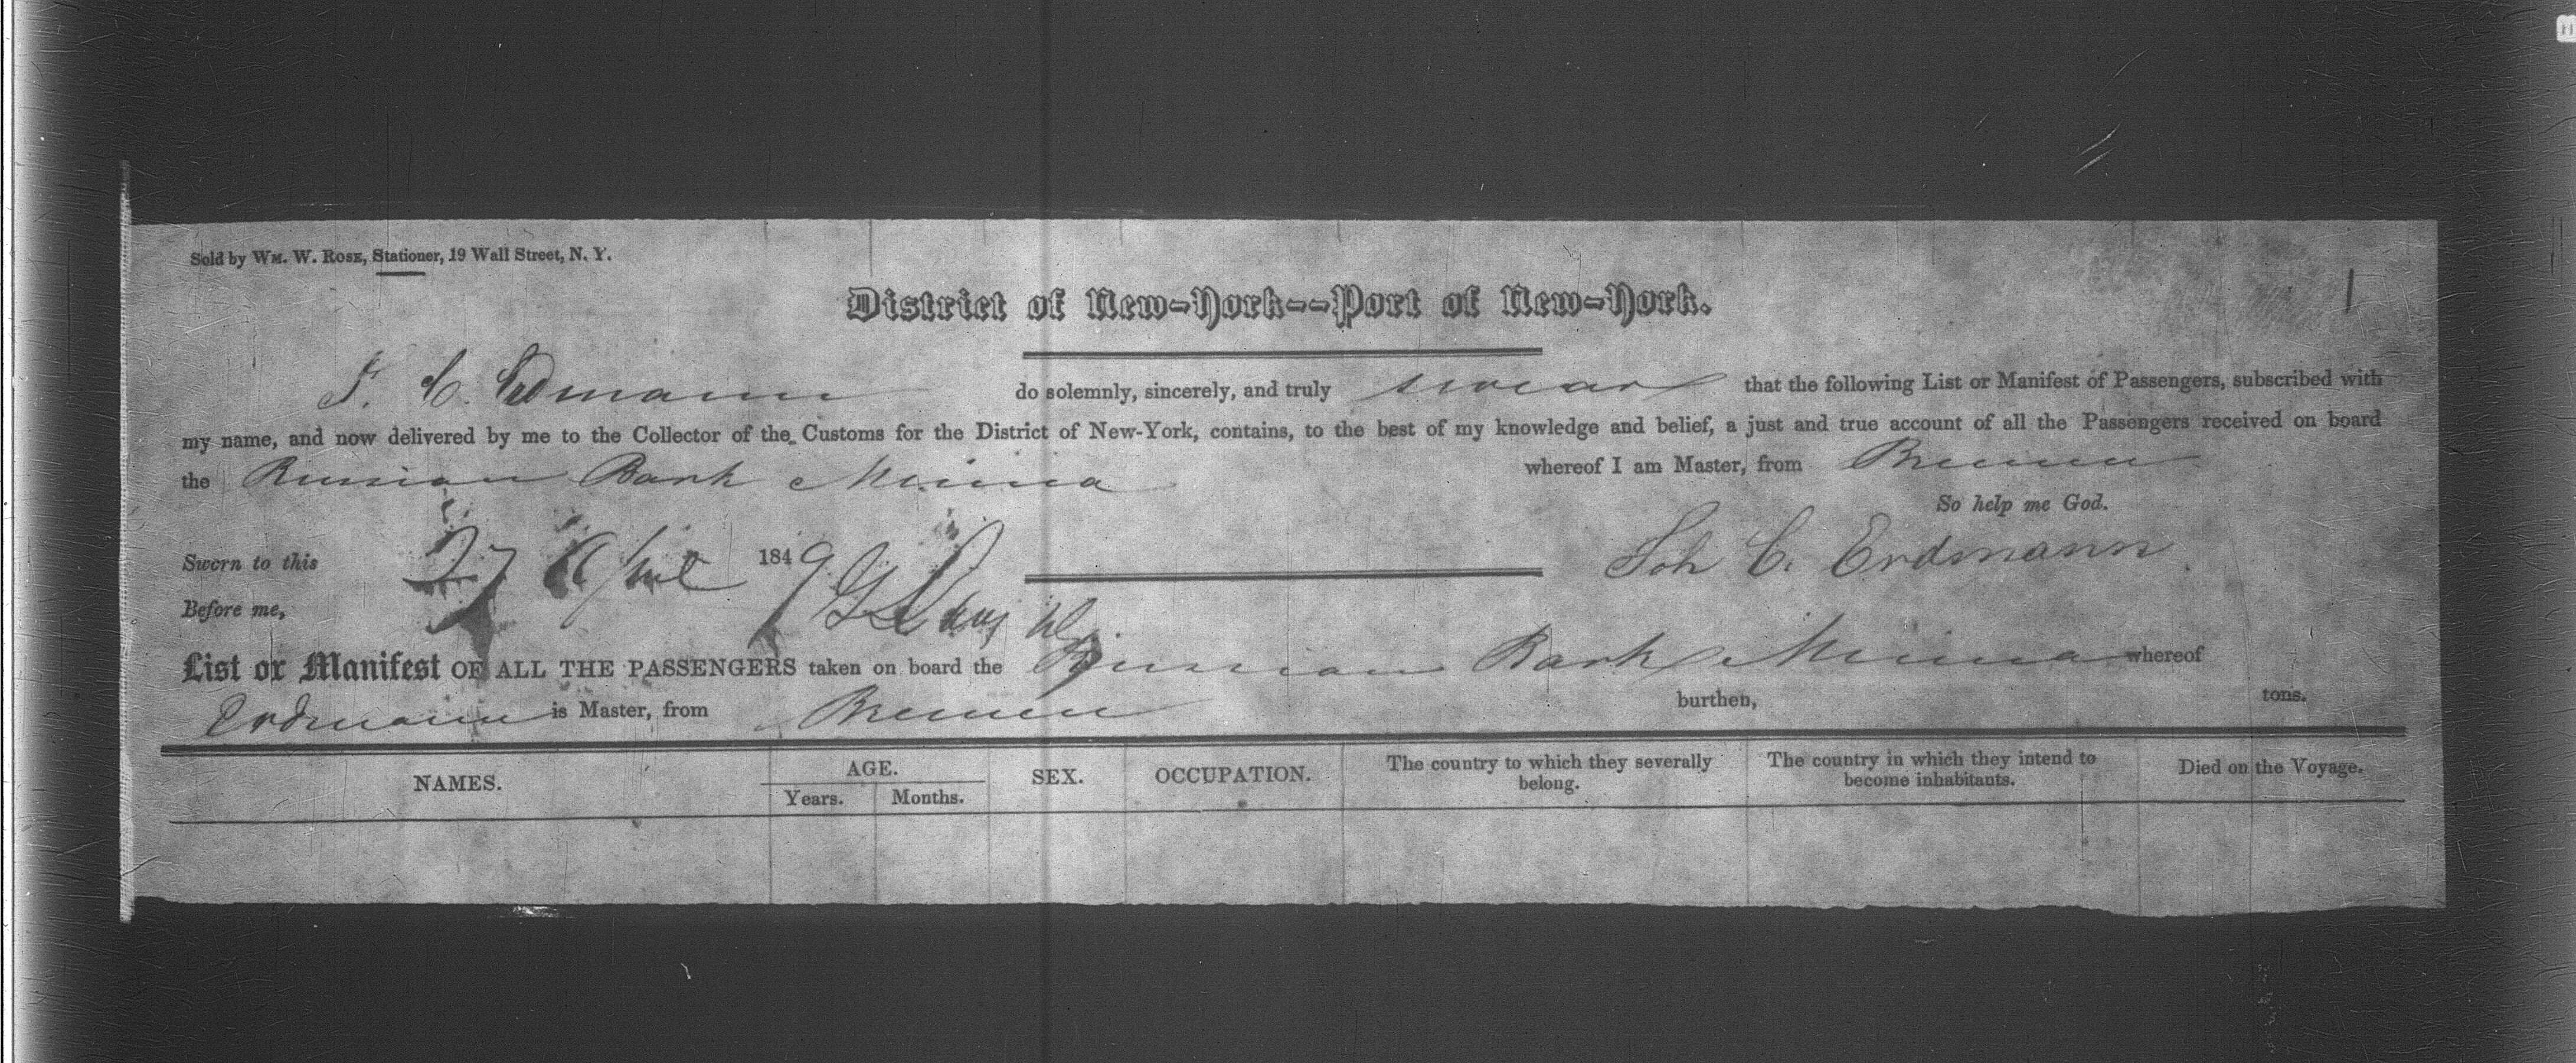 Sold by WM. W. ROSE, Stationer, 19 Wall Street, N. Y.
District of New-York--Port of New-York.
1
J. C. Erdmann do solemnly, sincerely, and truly swear that the following List or Manifest of Passengers, subscribed with
my name, and now delivered by me to the Collector of the Customs for the District of New-York, contains, to the best of my knowledge and belief, a just and true account of all the Passengers received on board
the Russian Bark Minna whereof I am Master, from Bremen
So help me God.
Sworn to this 27 April 1849 Joh C. Erdmann
Before me,
List or Manifest OF ALL THE PASSENGERS taken on board the Russian Bark Minna whereof
Erdmann is Master, from Bremen burthen, tons.
NAMES. AGE. SEX. OCCUPATION. The country to which they severally belong. The country in which they intend to become inhabitants. Died on the Voyage.
Years. Months.